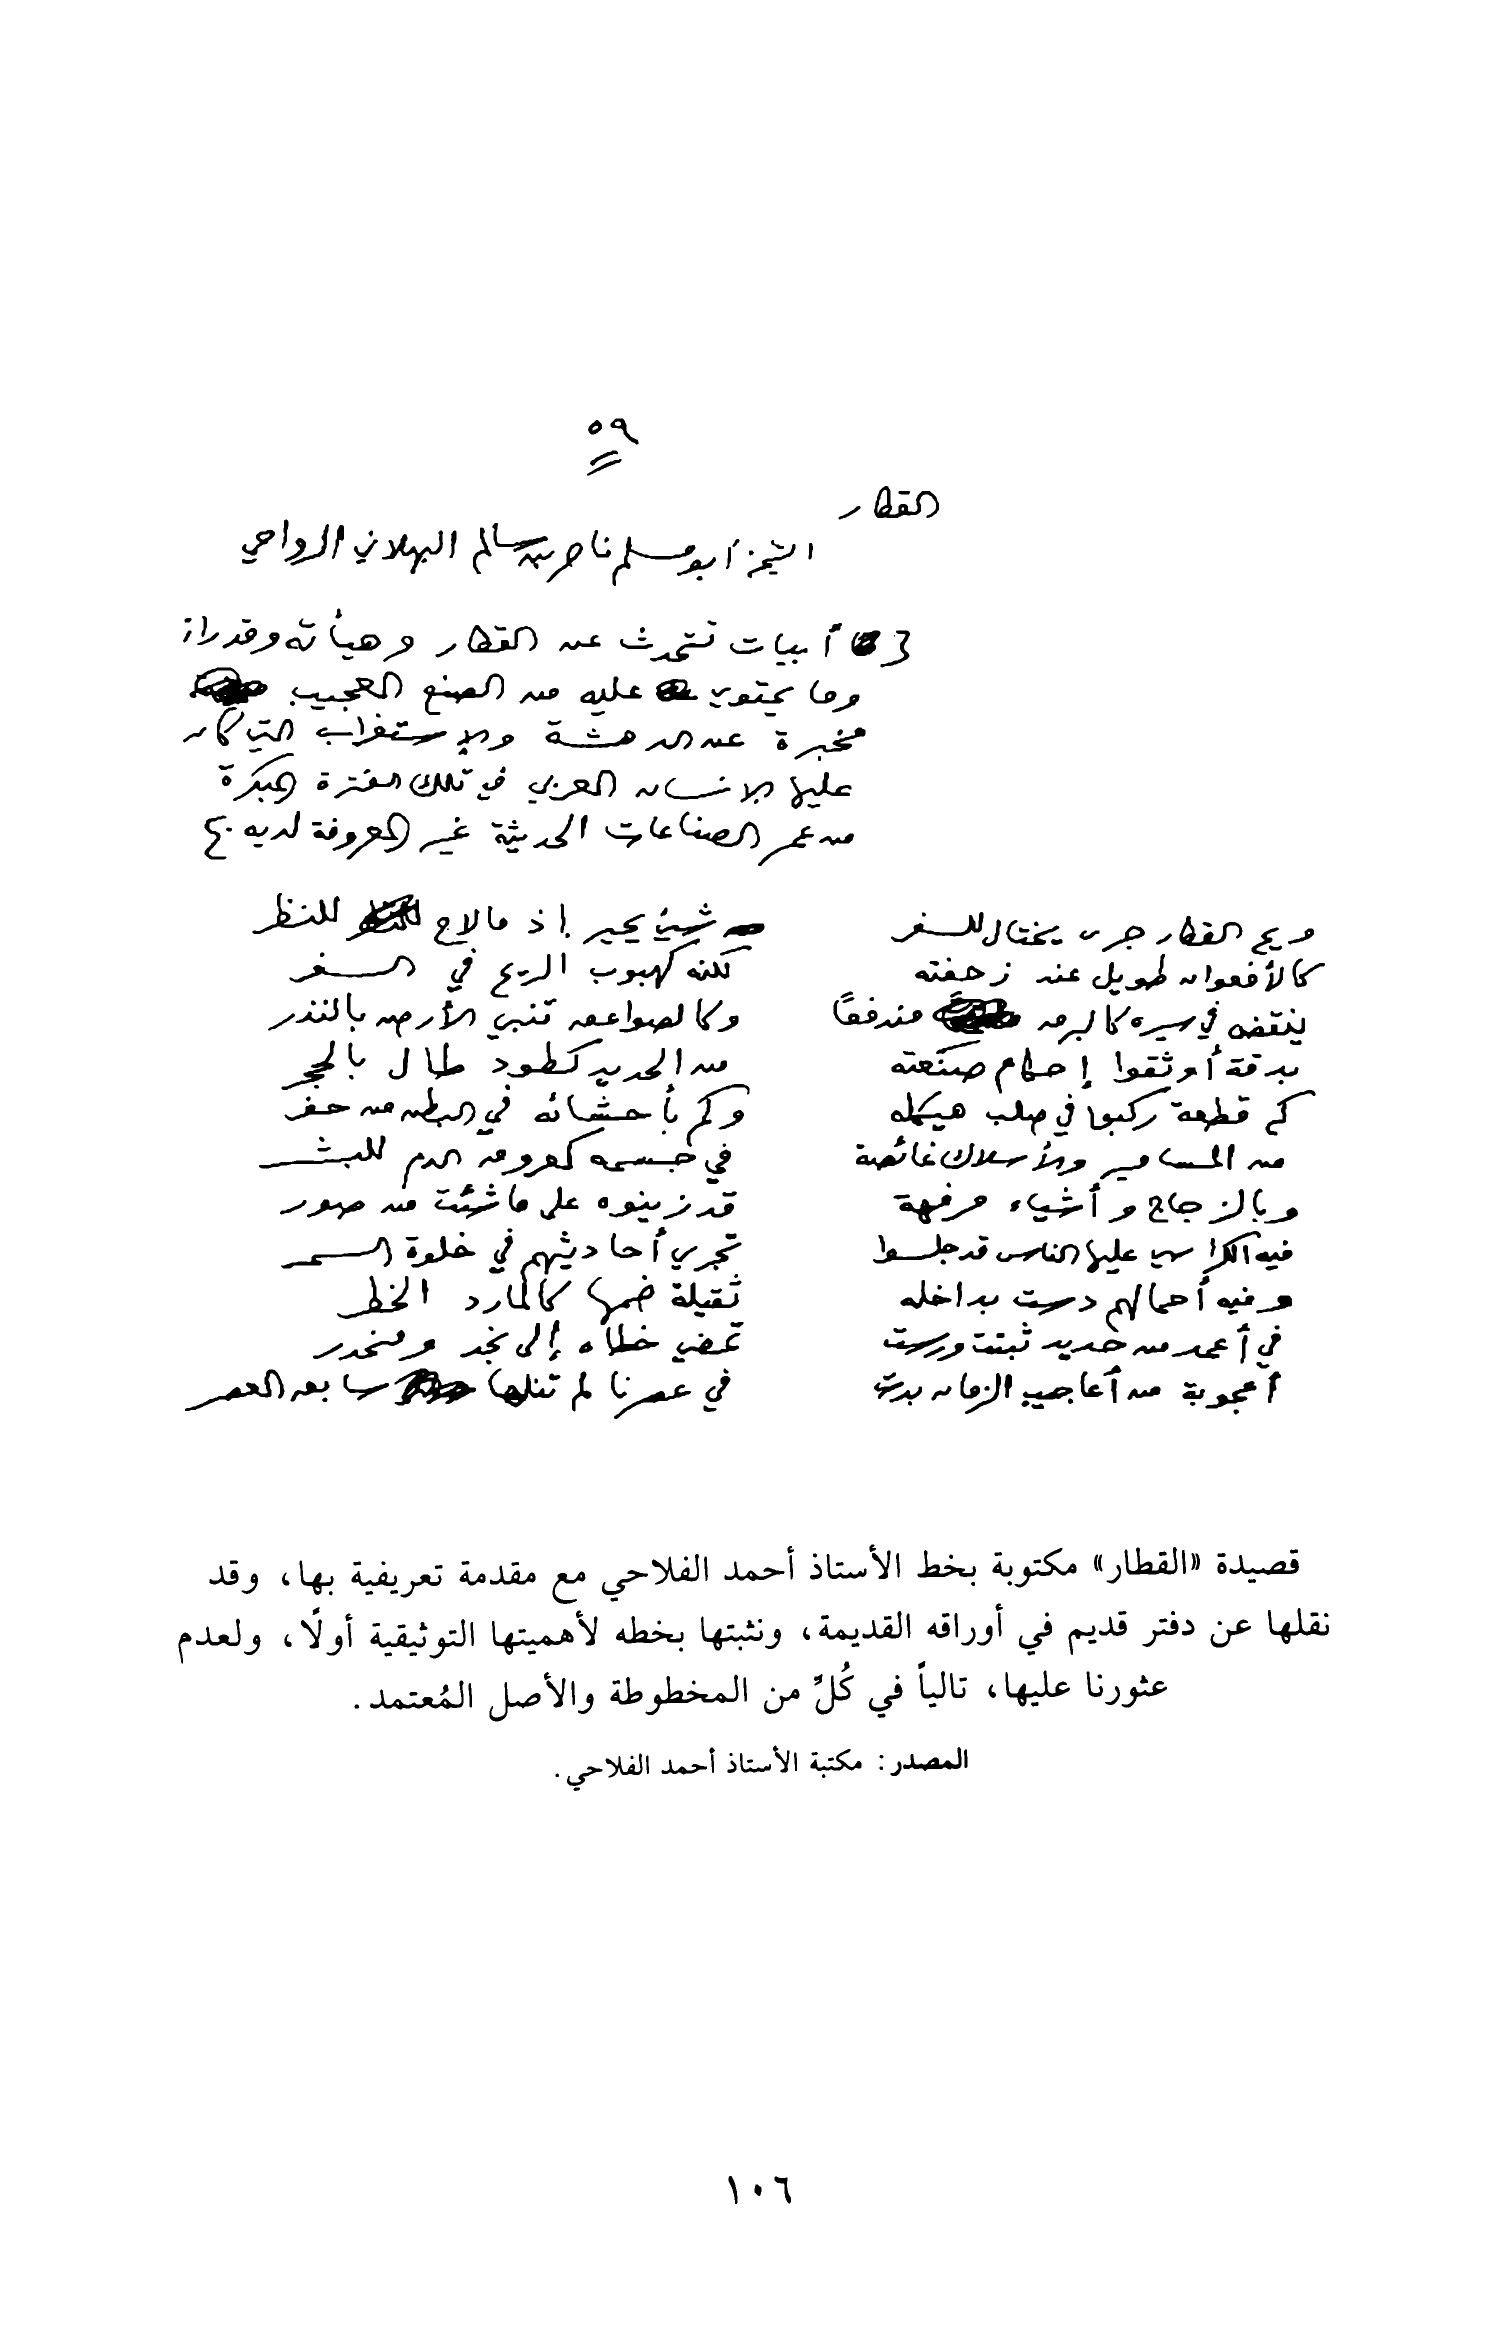 ٥٩
القطار
الشيخ أبو مسلم ناصر بن سالم البهلاني الرواحي
أبيات تتحدث عن القطار وهيأته وقدراته
وما يحتوي عليه من الصنع العجيب
مخبرة عن الدهشة والإستغراب التي كان
عليها الإنسان العربي في تلك الفترة المبكرة
من عمر الصناعات الحديثة غير المعروفة لديه
ويح القطار جرى يختال للسفر شيئ يحير إذ ما لاح للنظر
كالأفعوان طويل عند زحفته لكنه كهبوب الريح في السفر
ينقض في سيره كالبرق مندفعاً وكالصواعق تنبي الأرض بالنذر
بدقة أوثقوا إحكام صنعته من الحديد كطود طال بالحجر
كم قطعة ركبوا في صلب هيكله وكم بأحشائه في البطن من حفر
من المسامير والأسلاك غائصة في جسمه كعروق الدم للبشر
وبالزجاج وأشياء مرفهة قد زينوه على ما شئت من صور
فيه الكراسي عليها الناس قد جلسوا تجري أحاديثهم في خلوة السمر
وفيه أحمالهم دست بداخله ثقيلة ضمها كالمارد الخطر
في أعمد من حديد ثبتت ورست تمضي خطاه إلى نجد ومنحدر
أعجوبة من أعاجيب الزمان بدت في عصرنا لم تنلها سابق العصر
قصيدة «القطار» مكتوبة بخط الأستاذ أحمد الفلاحي مع مقدمة تعريفية بها، وقد
نقلها عن دفتر قديم في أوراقه القديمة، ونثبتها بخطه لأهميتها التوثيقية أولًا، ولعدم
عثورنا عليها، تالياً في كُلٍّ من المخطوطة والأصل المُعتمد.
المصدر: مكتبة الأستاذ أحمد الفلاحي.
١٠٦